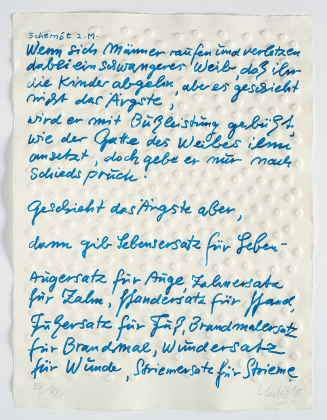 Schemót 2. M.
Wenn sich Männer raufen und verletzen
dabei ein schwangeres Weib, daß ihr
die Kinder abgehn, aber es geschieht
nicht das Ärgste,
wird er mit Bußleistung gebüßt,
wie der Gatte des Weibes ihm
ansetzt, doch gebe er nur nach
Schiedspruch:
Geschieht das Ärgste aber,
dann gib Lebensersatz für Leben-
Augersatz für Auge, Zahnersatz
für Zahn, Handersatz für Hand,
Fußersatz für Fuß, Brandmalersatz
für Brandmal, Wundersatz
für Wunde, Striemersatz für Strieme